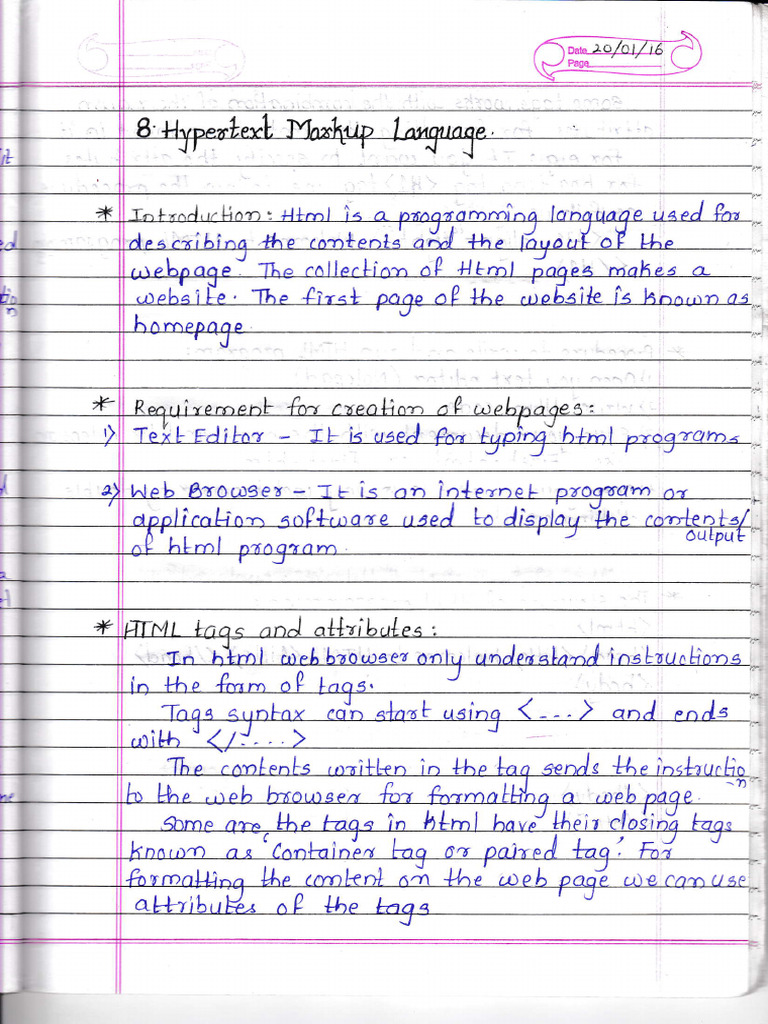 Date 20/01/16
Page
8. Hypertext Markup Language.
* Introduction: Html is a programming language used for
describing the contents and the layout of the
webpage. The collection of Html pages makes a
website. The first page of the website is known as
homepage.
* Requirement for creation of webpages:
1) Text Editor - It is used for typing html programs
2) Web Browser - It is an internet program or
application software used to display the contents/
output
of html program.
* HTML tags and attributes:
In html web browser only understand instructions
in the form of tags.
Tags syntax can start using <---> and ends
with </....>
The contents written in the tag sends the instructio
-n
to the web browser for formatting a web page.
Some are the tags in html have their closing tags
known as 'Container tag or paired tag.' For
formatting the content on the web page we can use
attributes of the tags